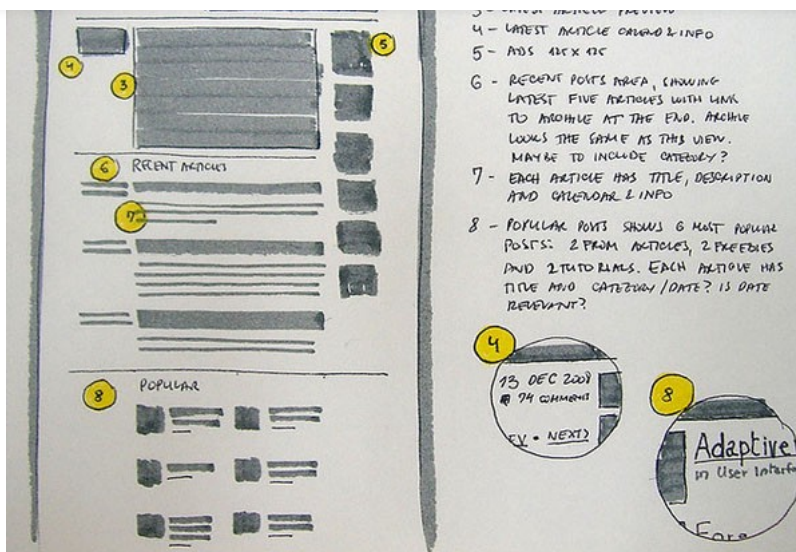 3 - LATEST ARTICLE PREVIEW
4 - LATEST ARTICLE CALEND & INFO
5 - ADS 125 X 125
6 - RECENT POSTS AREA, SHOWING
LATEST FIVE ARTICLES WITH LINK
TO ARCHIVE AT THE END. ARCHIVE
LOOKS THE SAME AS THIS VIEW.
MAYBE TO INCLUDE CATEGORY?
7 - EACH ARTICLE HAS TITLE, DESCRIPTION
AND CALENDAR & INFO
8 - POPULAR POSTS SHOWS 6 MOST POPULAR
POSTS: 2 FROM ARTICLES, 2 FREEBIES
AND 2 TUTORIALS. EACH ARTICLE HAS
TITLE AND CATEGORY/DATE? IS DATE
RELEVANT?
4
5
3
6 RECENT ARTICLES
7
8 POPULAR
4
13 DEC 2008
74 COMMENTS
EV • NEXT>
8
Adaptive
in User Interfa
Fore